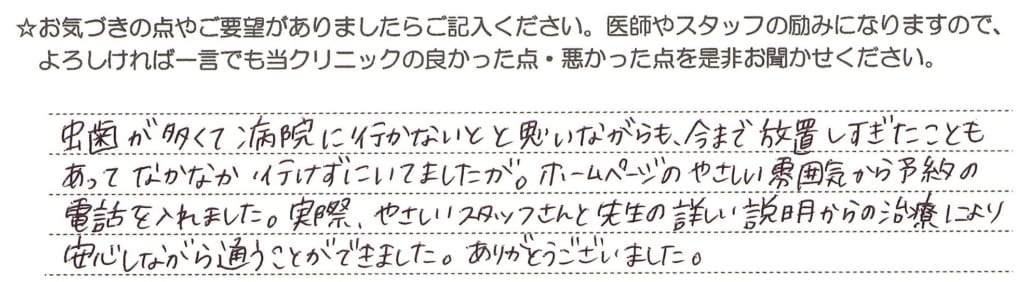 ☆お気づきの点やご要望がありましたらご記入ください。医師やスタッフの励みになりますので、
よろしければ一言でも当クリニックの良かった点・悪かった点を是非お聞かせください。
虫歯が多くて病院に行かないとと思いながらも、今まで放置しすぎたことも
あってなかなか行けずにいてましたが。ホームページのやさしい雰囲気から予約の
電話を入れました。実際、やさしいスタッフさんと先生の詳しい説明からの治療により
安心しながら通うことができました。ありがとうございました。